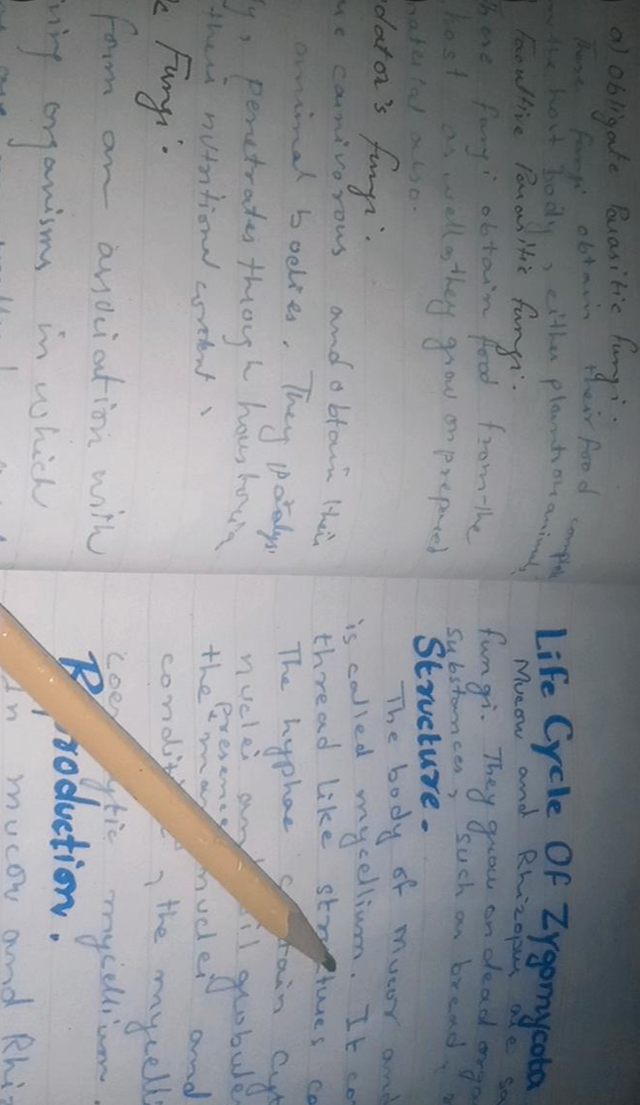 a) Obligate Parasitic fungi.
These fungi obtain their food
the host body, either plant or animal
Facultive Parasitic fungi.
These fungi obtain food from the
host as well as they grow on prepared
material also.
dator's fungi.
carnivorous and obtain their
animal bodies. They paralys
penetrates through haustoria
their nutritional content
Fungi.
form an association with
ing organisms in which
Life Cycle Of Zygomycota
Mucor and Rhizopus are sa
fungi. They grow on dead orga
substances, such as bread,
Structure.
The body of mucor and
is called mycellium. It co
thread like structures ca
The hyphae contain cyt
nuclei an oil globule
presence
the many nuclei and
condition, the myceli
coenocytic mycellium.
Reproduction.
In mucor and Rhiz